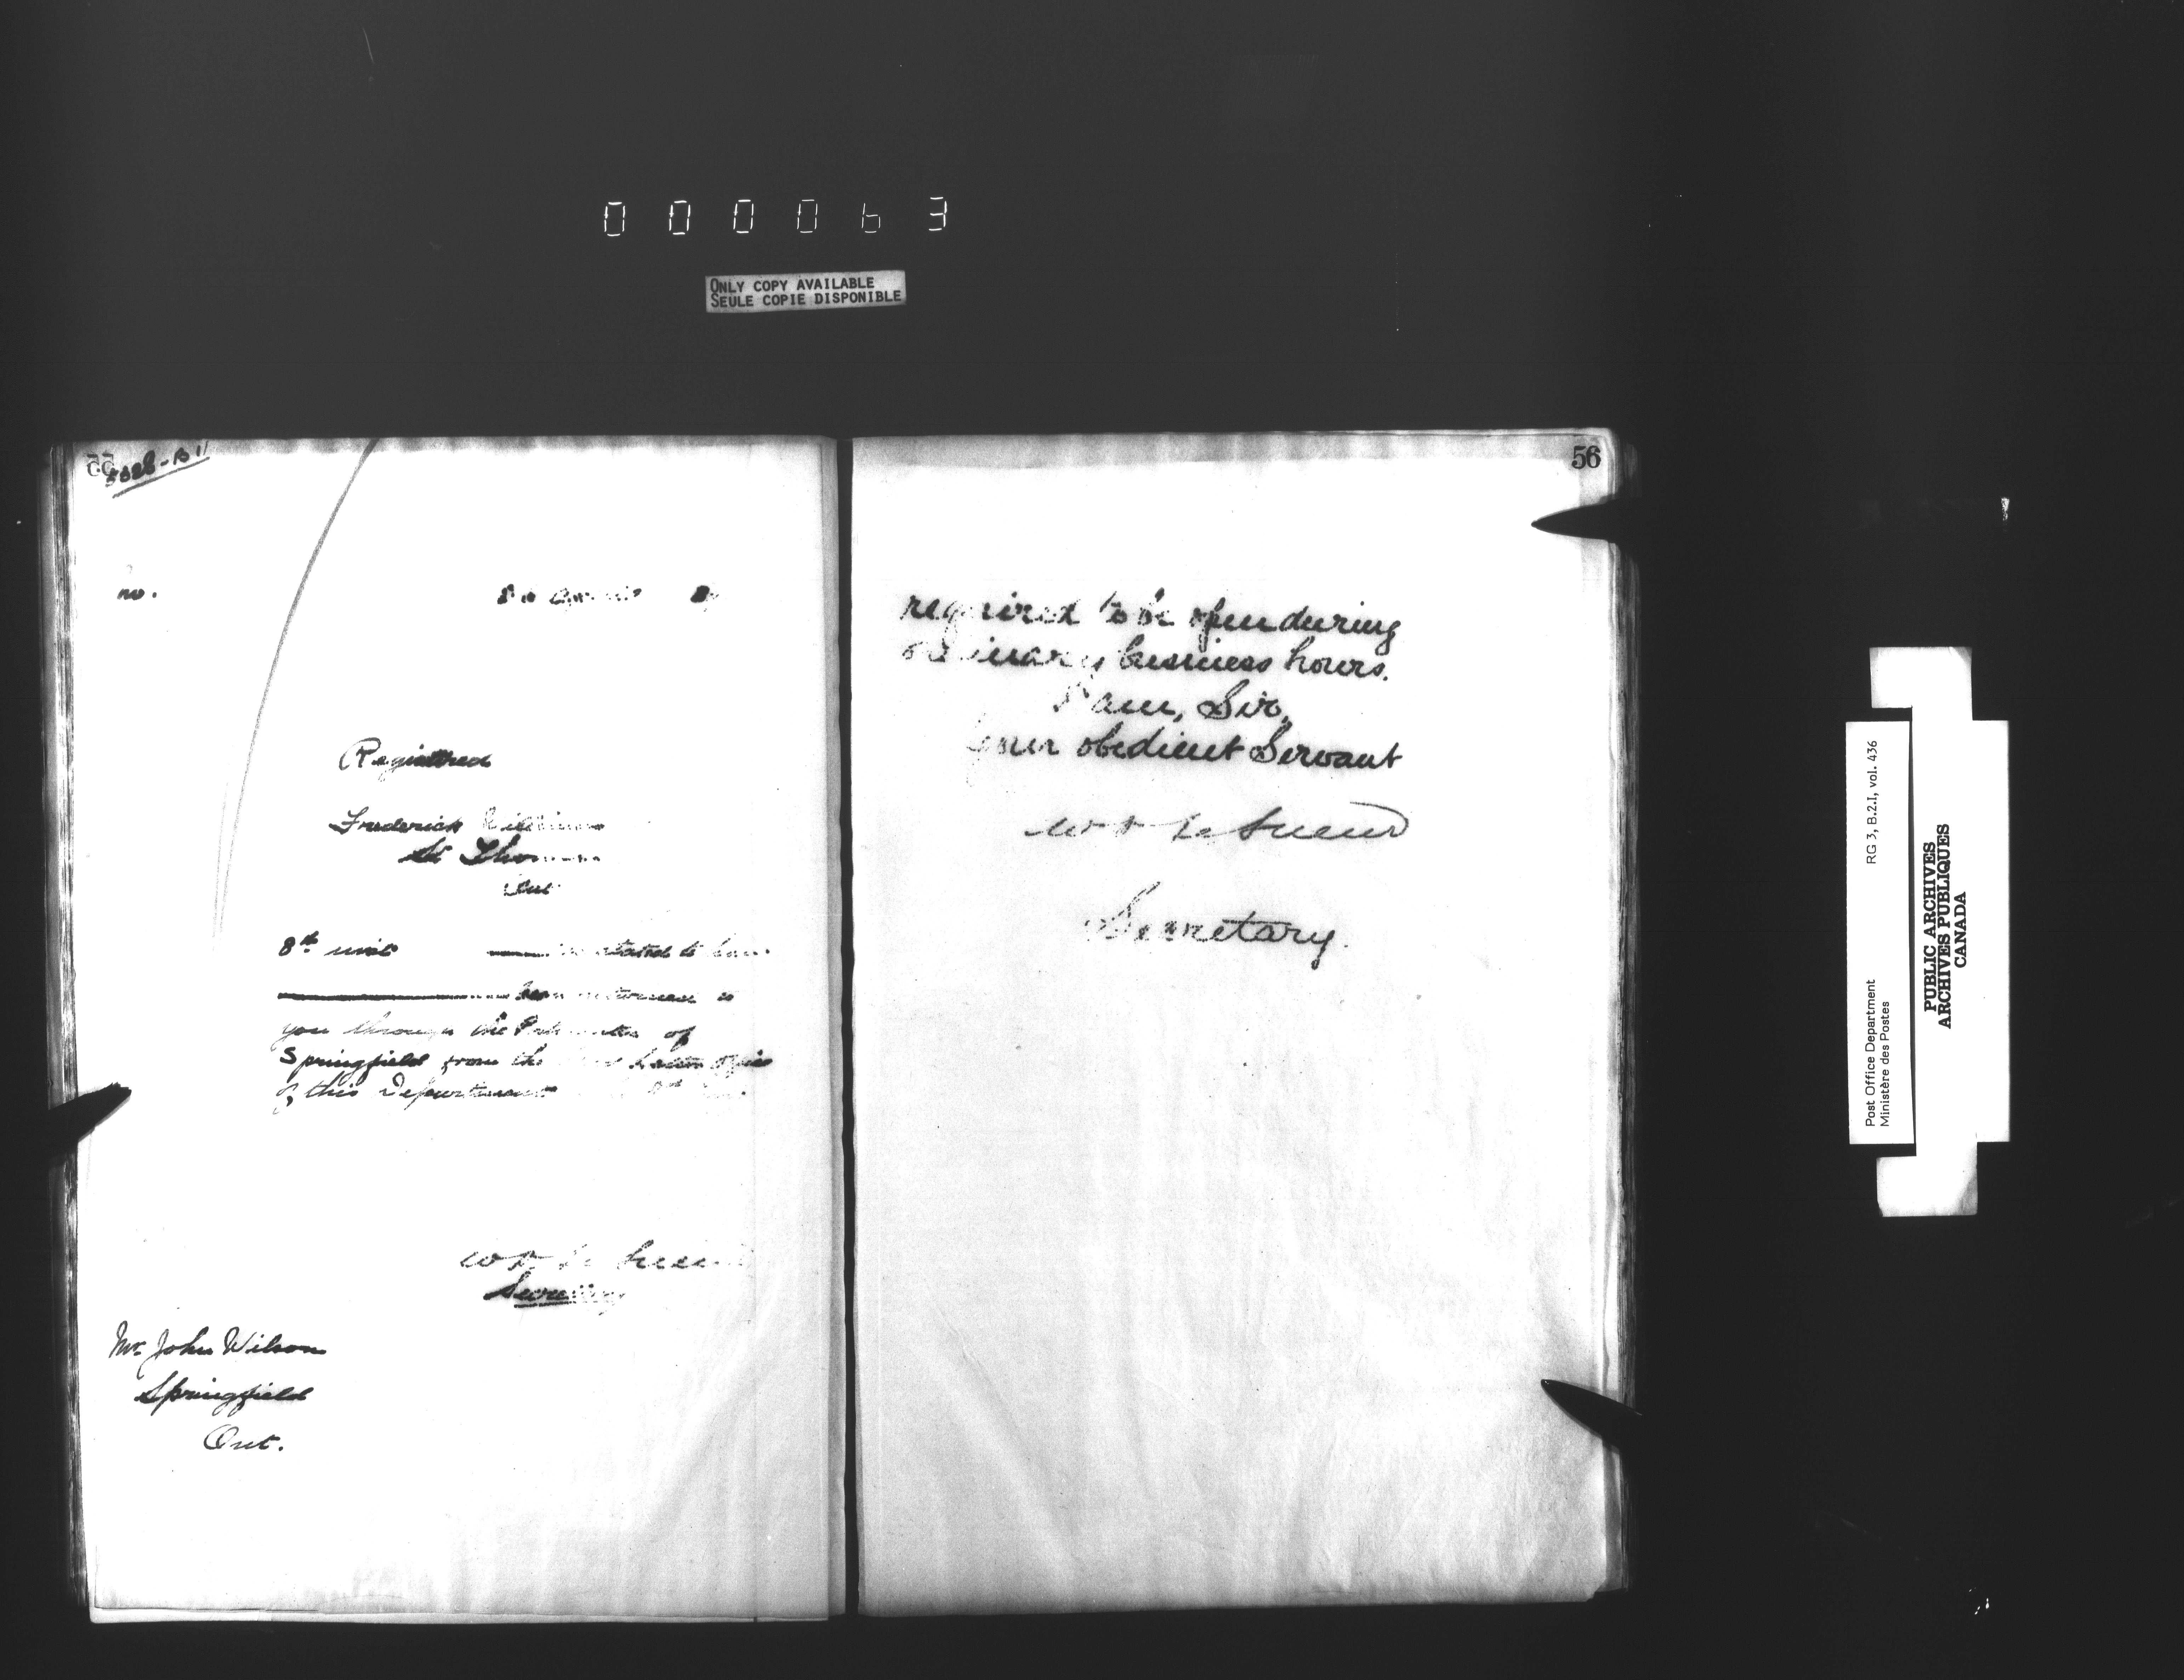 000063
ONLY COPY AVAILABLE
SEULE COPIE DISPONIBLE
55
no.
Registered
Frederick
St Thomas
Ont
8th inst stated to have
been returned to
you through the Postmaster of
Springfield from the Dead Letter Office
of this Department
W D Le Sueur
Secretary
Mr. John Wilson
Springfield
Ont.
56
required to be open during
ordinary business hours.
I am, Sir,
Your obedient Servant
W D Le Sueur
Secretary.
Post Office Department RG 3, B.2.I, vol. 436
Ministère des Postes
PUBLIC ARCHIVES
ARCHIVES PUBLIQUES
CANADA